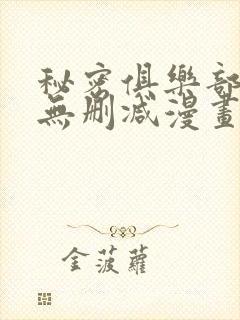 秘密俱樂部
無刪減漫畫
金菠蘿